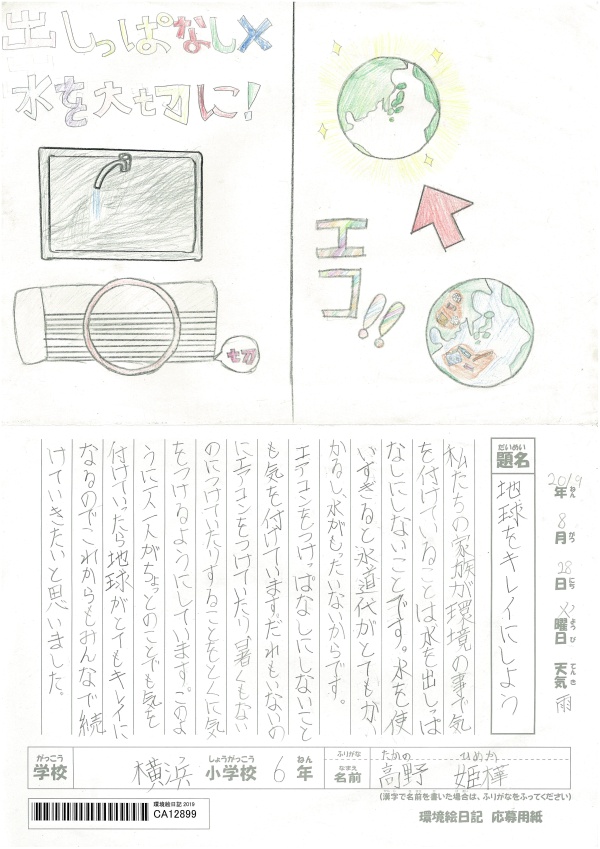 出しっぱなし×
水を大切に！
切
エコ!!
2019年ねん
8月がつ
28日にち
火曜日ようび
天気てんき 雨
題名だいめい 地球をキレイにしよう
私たちの家族が環境の事で気
を付けていることは水を出しっぱ
なしにしないことです。水を使
いすぎると水道代がとてもか
かるし、水がもったいないからです。
エアコンをつけっぱなしにしないこと
も気を付けています。だれもいないの
にエアコンをつけていたり、暑くもない
のにつけていたりすることをとくに気
をつけるようにしています。このよ
うに一人一人がちょっとのことでも気を
付けていったら地球がとてもキレイに
なるのでこれからもみんなで続
けていきたいと思いました。
学校がっこう 横浜 小学校しょうがっこう 6年ねん
ふりがな たかの ひめか
名前なまえ 高野 姫樺
(漢字で名前を書いた場合は、ふりがなをふってください)
環境絵日記 2019
CA12899
環境絵日記 応募用紙